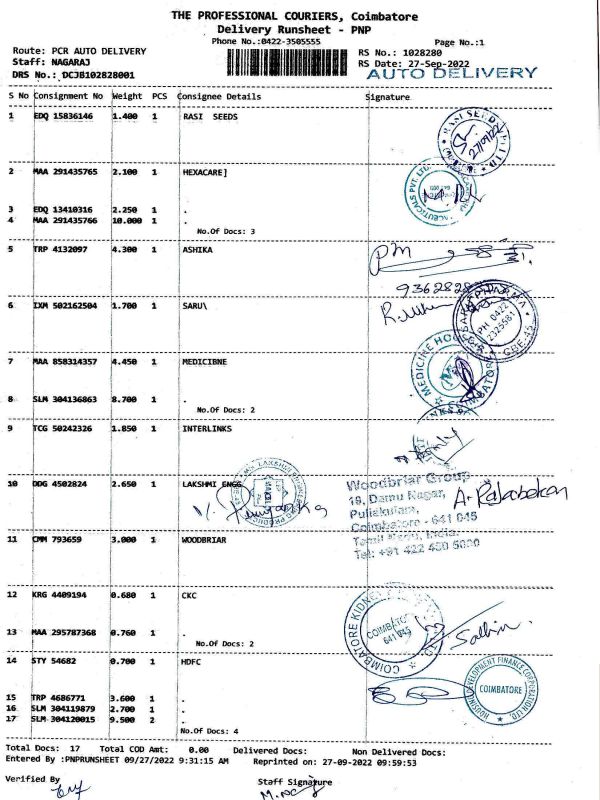 THE PROFESSIONAL COURIERS, Coimbatore
Delivery Runsheet - PNP
Phone No.:0422-3505555
Page No.:1
Route: PCR AUTO DELIVERY
RS No.: 1028280
Staff: NAGARAJ
RS Date: 27-Sep-2022
DRS No.: DCJB102828001
AUTO DELIVERY
S No Consignment No Weight PCS Consignee Details Signature
1 EDQ 15836146 1.400 1 RASI SEEDS
2 MAA 291435765 2.100 1 HEXACARE]
3 EDQ 13410316 2.250 1 .
4 MAA 291435766 10.000 1 .
No.Of Docs: 3
5 TRP 4132097 4.300 1 ASHIKA
PM
6 IXM 502162504 1.700 1 SARU\
PH 0422
2325581
CBE-45
7 MAA 858314357 4.450 1 MEDICIBNE
8 SLM 304136863 8.700 1 .
No.Of Docs: 2
9 TCG 50242326 1.850 1 INTERLINKS
10 DDG 4502824 2.650 1 LAKSHMI ENGG
Woodbriar Group
19, Damu Nagar,
Puliakulam,
Coimbatore - 641 045
Tamil Nadu, India.
Tel: +91 422 430 5000
11 CMM 793659 3.000 1 WOODBRIAR
12 KRG 4409194 0.680 1 CKC
COIMBATORE
641 045
13 MAA 295787368 0.760 1 .
No.Of Docs: 2
14 STY 54682 0.700 1 HDFC
HOUSING DEVELOPMENT FINANCE CORPORATION LTD
COIMBATORE
15 TRP 4686771 3.600 1 .
16 SLM 304119879 2.700 1 .
17 SLM 304120015 9.500 2 .
No.Of Docs: 4
Total Docs: 17 Total COD Amt: 0.00 Delivered Docs: Non Delivered Docs:
Entered By :PNPRUNSHEET 09/27/2022 9:31:15 AM Reprinted on: 27-09-2022 09:59:53
Verified By
Staff Signature